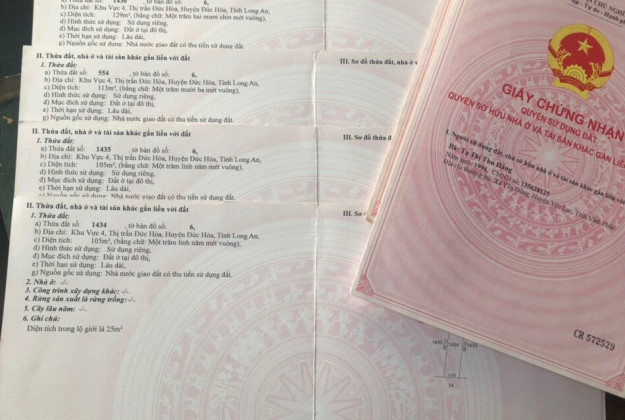 b) Địa chỉ: Khu Vực 4, Thị trấn Đức Hòa, Huyện Đức Hòa, Tỉnh Long An,
c) Diện tích: 129m², (bằng chữ: Một trăm hai mươi chín mét vuông),
d) Hình thức sử dụng: Sử dụng riêng,
đ) Mục đích sử dụng: Đất ở tại đô thị,
e) Thời hạn sử dụng: Lâu dài,
g) Nguồn gốc sử dụng: Nhà nước giao đất có thu tiền sử dụng đất.
II. Thửa đất, nhà ở và tài sản khác gắn liền với đất
III. Sơ đồ thửa đất, nhà ở v
1. Thửa đất:
a) Thửa đất số: 554 , tờ bản đồ số: 6,
b) Địa chỉ: Khu Vực 4, Thị trấn Đức Hòa, Huyện Đức Hòa, Tỉnh Long An,
c) Diện tích: 113m², (bằng chữ: Một trăm mười ba mét vuông),
d) Hình thức sử dụng: Sử dụng riêng,
đ) Mục đích sử dụng: Đất ở tại đô thị,
e) Thời hạn sử dụng: Lâu dài,
g) Nguồn gốc sử dụng: Nhà nước giao đất có thu tiền sử dụng đất.
II. Thửa đất, nhà ở và tài sản khác gắn liền với đất
III. Sơ đồ thửa đ
1. Thửa đất:
a) Thửa đất số: 1435 , tờ bản đồ số: 6,
b) Địa chỉ: Khu Vực 4, Thị trấn Đức Hòa, Huyện Đức Hòa, Tỉnh Long An,
c) Diện tích: 105m², (bằng chữ: Một trăm linh năm mét vuông),
d) Hình thức sử dụng: Sử dụng riêng,
đ) Mục đích sử dụng: Đất ở tại đô thị,
e) Thời hạn sử dụng: Lâu dài,
g) Nguồn gốc sử dụng: Nhà nước giao đất có thu tiền sử dụng đất.
II. Thửa đất, nhà ở và tài sản khác gắn liền với đất
III. Sơ
1. Thửa đất:
a) Thửa đất số: 1434 , tờ bản đồ số: 6,
b) Địa chỉ: Khu Vực 4, Thị trấn Đức Hòa, Huyện Đức Hòa, Tỉnh Long An,
c) Diện tích: 105m², (bằng chữ: Một trăm linh năm mét vuông),
d) Hình thức sử dụng: Sử dụng riêng,
đ) Mục đích sử dụng: Đất ở tại đô thị,
e) Thời hạn sử dụng: Lâu dài,
g) Nguồn gốc sử dụng: Nhà nước giao đất có thu tiền sử dụng đất.
2. Nhà ở: -/-.
3. Công trình xây dựng khác: -/-.
4. Rừng sản xuất là rừng trồng: -/-.
5. Cây lâu năm: -/-.
6. Ghi chú:
Diện tích trong lộ giới là 25m²
1434
GIẤY CHỨNG NHẬN
QUYỀN SỬ DỤNG ĐẤT
QUYỀN SỞ HỮU NHÀ Ở VÀ TÀI SẢN KHÁC GẮN LIỀN
I. Người sử dụng đất, chủ sở hữu nhà ở và tài sản khác gắn liền với đất
Bà: Tạ Thị Thu Hằng
CR 572529